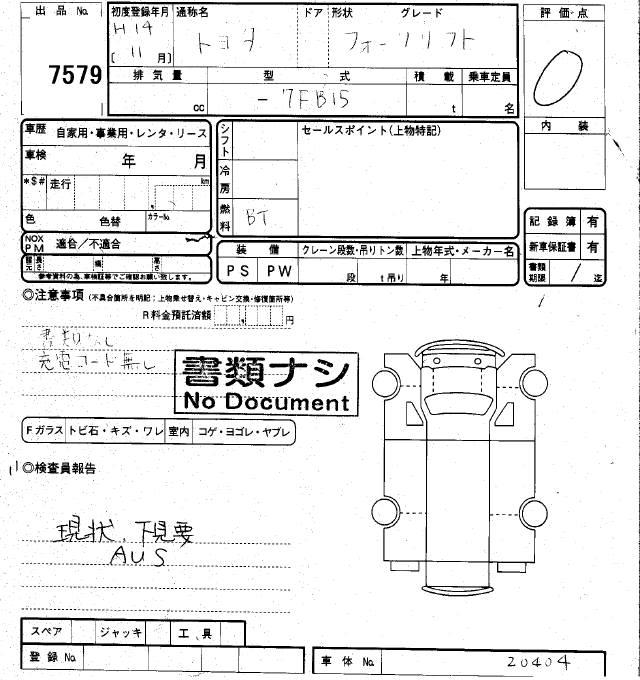 出品 No. 7579
初度登録年月 H14 [11 月]
通称名 トヨタ
ドア 形状 フォークリフト
グレード
排気量 cc
型式 -7FB15
積載 t
乗車定員 名
評価・点
内装
車歴 自家用・事業用・レンタ・リース
車検 年 月
*$# 走行 km
色 色替 カラーNo.
NOX PM 適合/不適合
長さ 幅 高さ
参考資料の為、車検証等でご確認お願い致します。
シフト
冷房
燃料 BT
セールスポイント(上物特記)
装備 PS PW
クレーン段数・吊りトン数 段 t吊り
上物年式・メーカー名 年
記録簿 有
新車保証書 有
書類期限 / 迄
◎注意事項 (不具合箇所を明記;上物乗せ替え・キャビン交換・修復箇所等)
R料金預託済額 円
充電コード無し
書類ナシ
No Document
Fガラス トビ石・キズ・ワレ 室内 コゲ・ヨゴレ・ヤブレ
◎検査員報告
現状、下見要
AUS
スペア ジャッキ 工具
登録 No.
車体 No. 20404